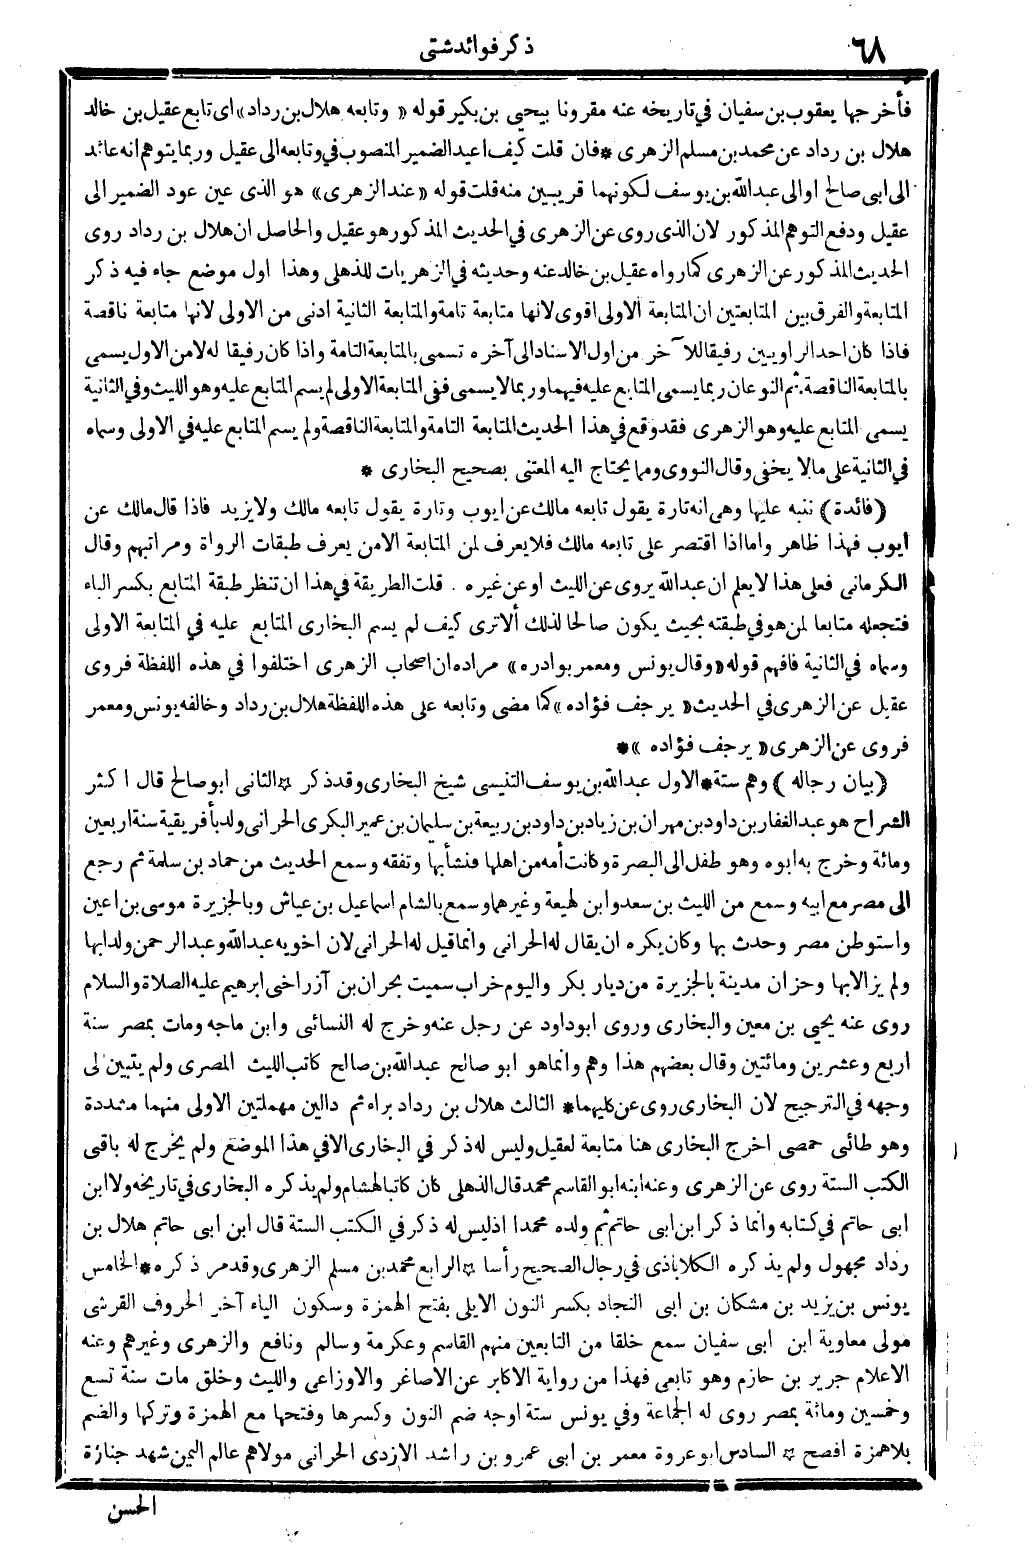 ٦٨
ذكر فوائد شتى
فأخرجها يعقوب بن سفيان في تاريخه عنه مقرونا بيحيى بن بكير قوله «وتابعه هلال بن رداد» اى تابع عقيل بن خالد
هلال بن رداد عن محمد بن مسلم الزهرى * فان قلت كيف اعيد الضمير المنصوب في وتابعه الى عقيل وربما يتوهم انه عائد
الى ابى صالح او الى عبد الله بن يوسف لكونهما قريبين منه قلت قوله «عند الزهرى» هو الذى عين عود الضمير الى
عقيل ودفع التوهم المذكور لان الذى روى عن الزهرى في الحديث المذكور هو عقيل والحاصل ان هلال بن رداد روى
الحديث المذكور عن الزهرى كما رواه عقيل بن خالد عنه وحديثه في الزهريات للذهلى وهذا اول موضع جاء فيه ذكر
المتابعة والفرق بين المتابعتين ان المتابعة الاولى اقوى لانها متابعة تامة والمتابعة الثانية ادنى من الاولى لانها متابعة ناقصة
فاذا كان احد الراويين رفيقا للآخر من اول الاسناد الى آخره تسمى بالمتابعة التامة واذا كان رفيقا له لا من الاول يسمى
بالمتابعة الناقصة. ثم النوعان ربما يسمى المتابع عليه فيهما وربما لا يسمى ففى المتابعة الاولى لم يسم المتابع عليه وهو الليث وفي الثانية
يسمى المتابع عليه وهو الزهرى فقد وقع في هذا الحديث المتابعة التامة والمتابعة الناقصة ولم يسم المتابع عليه في الاولى وسماه
في الثانية على ما لا يخفى وقال النووى ومما يحتاج اليه المعتنى بصحيح البخارى *
(فائدة) ننبه عليها وهى انه تارة يقول تابعه مالك عن ايوب وتارة يقول تابعه مالك ولا يزيد فاذا قال مالك عن
ايوب فهذا ظاهر واما اذا اقتصر على تابعه مالك فلا يعرف لمن المتابعة الا من يعرف طبقات الرواة ومراتبهم وقال
الكرمانى فعلى هذا لا يعلم ان عبد الله يروى عن الليث او عن غيره . قلت الطريقة في هذا ان تنظر طبقة المتابع بكسر الباء
فتجعله متابعا لمن هو في طبقته بحيث يكون صالحا لذلك ألا ترى كيف لم يسم البخارى المتابع عليه في المتابعة الاولى
وسماه في الثانية فافهم قوله «وقال يونس ومعمر بوادره» مراده ان اصحاب الزهرى اختلفوا في هذه اللفظة فروى
عقيل عن الزهرى في الحديث «يرجف فؤاده» كما مضى وتابعه على هذه اللفظة هلال بن رداد وخالفه يونس ومعمر
فروى عن الزهرى «يرجف فؤاده» *
(بيان رجاله) وهم ستة * الاول عبد الله بن يوسف التنيسى شيخ البخارى وقد ذكر * الثانى ابو صالح قال اكثر
الشراح هو عبد الغفار بن داود بن مهران بن زياد بن داود بن ربيعة بن سليمان بن عمير البكرى الحرانى ولد بأفريقية سنة اربعين
ومائة وخرج به ابوه وهو طفل الى البصرة وكانت أمه من اهلها فنشأ بها وتفقه وسمع الحديث من حماد بن سلمة ثم رجع
الى مصر مع ابيه وسمع من الليث بن سعد وابن لهيعة وغيرهما وسمع بالشام اسماعيل بن عياش وبالجزيرة موسى بن اعين
واستوطن مصر وحدث بها وكان يكره ان يقال له الحرانى وانما قيل له الحرانى لان اخويه عبد الله وعبد الرحمن ولدا بها
ولم يزالا بها وحزان مدينة بالجزيرة من ديار بكر واليوم خراب سميت بحران بن آزر اخى ابرهيم عليه الصلاة والسلام
روى عنه يحيى بن معين والبخارى وروى ابو داود عن رجل عنه وخرج له النسائى وابن ماجه ومات بمصر سنة
اربع وعشرين ومائتين وقال بعضهم هذا وهم وانما هو ابو صالح عبد الله بن صالح كاتب الليث المصرى ولم يتبين لى
وجهه في الترجيح لان البخارى روى عن كليهما * الثالث هلال بن رداد براء ثم دالين مهملتين الاولى منهما مشددة
وهو طائى حمصى اخرج البخارى هنا متابعة لعقيل وليس له ذكر في البخارى الا في هذا الموضع ولم يخرج له باقى
الكتب الستة روى عن الزهرى وعنه ابنه ابو القاسم محمد قال الذهلى كان كاتبا لهشام ولم يذكره البخارى في تاريخه ولا ابن
ابى حاتم في كتابه وانما ذكر ابن ابى حاتم ثم ولده محمدا اذ ليس له ذكر في الكتب الستة قال ابن ابى حاتم هلال بن
رداد مجهول ولم يذكره الكلاباذى في رجال الصحيح رأسا * الرابع محمد بن مسلم الزهرى وقد مر ذكره * الخامس
يونس بن يزيد بن مشكان بن ابى النجاد بكسر النون الايلى بفتح الهمزة وسكون الياء آخر الحروف القرشى
مولى معاوية ابن ابى سفيان سمع خلقا من التابعين منهم القاسم وعكرمة وسالم ونافع والزهرى وغيرهم وعنه
الاعلام جرير بن حازم وهو تابعى فهذا من رواية الاكابر عن الاصاغر والاوزاعى والليث وخلق مات سنة تسع
وخمسين ومائة بمصر روى له الجماعة وفي يونس ستة اوجه ضم النون وكسرها وفتحها مع الهمزة وتركها والضم
بلا همزة افصح * السادس ابو عروة معمر بن ابى عمرو بن راشد الازدى الحرانى مولاهم عالم اليمن شهد جنازة
الحسن